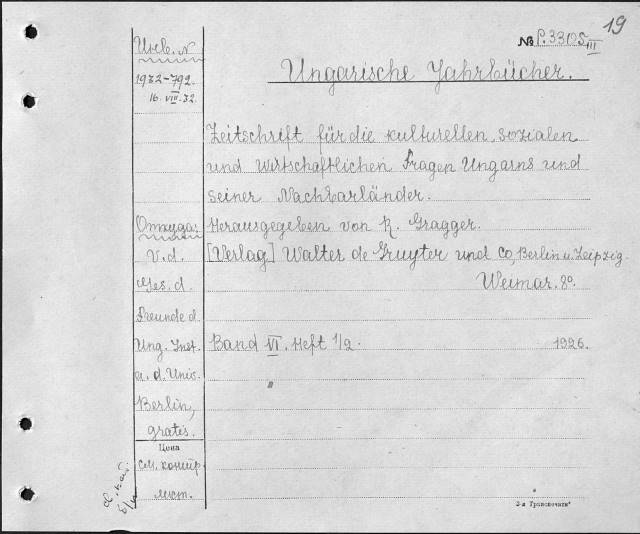 19
№ P.33105 III
Инв. №
Ungarische Jahrbücher.
1932-792
16.VIII.32.
Zeitschrift für die kulturellen, sozialen
und wirtschaftlichen Fragen Ungarns und
seiner Nachbarländer.
Откуда:
Herausgegeben von R. Gragger.
V. d.
[Verlag] Walter de Gruyter und Co, Berlin u. Leipzig.
Ges. d.
Weimar. 8°.
Freunde d.
Ung. Inst.
Band VI. Heft 1/2. 1926.
a. d. Univ.
"
Berlin,
gratis.
Цена
см. контр.
лист.
3-я Транспечати